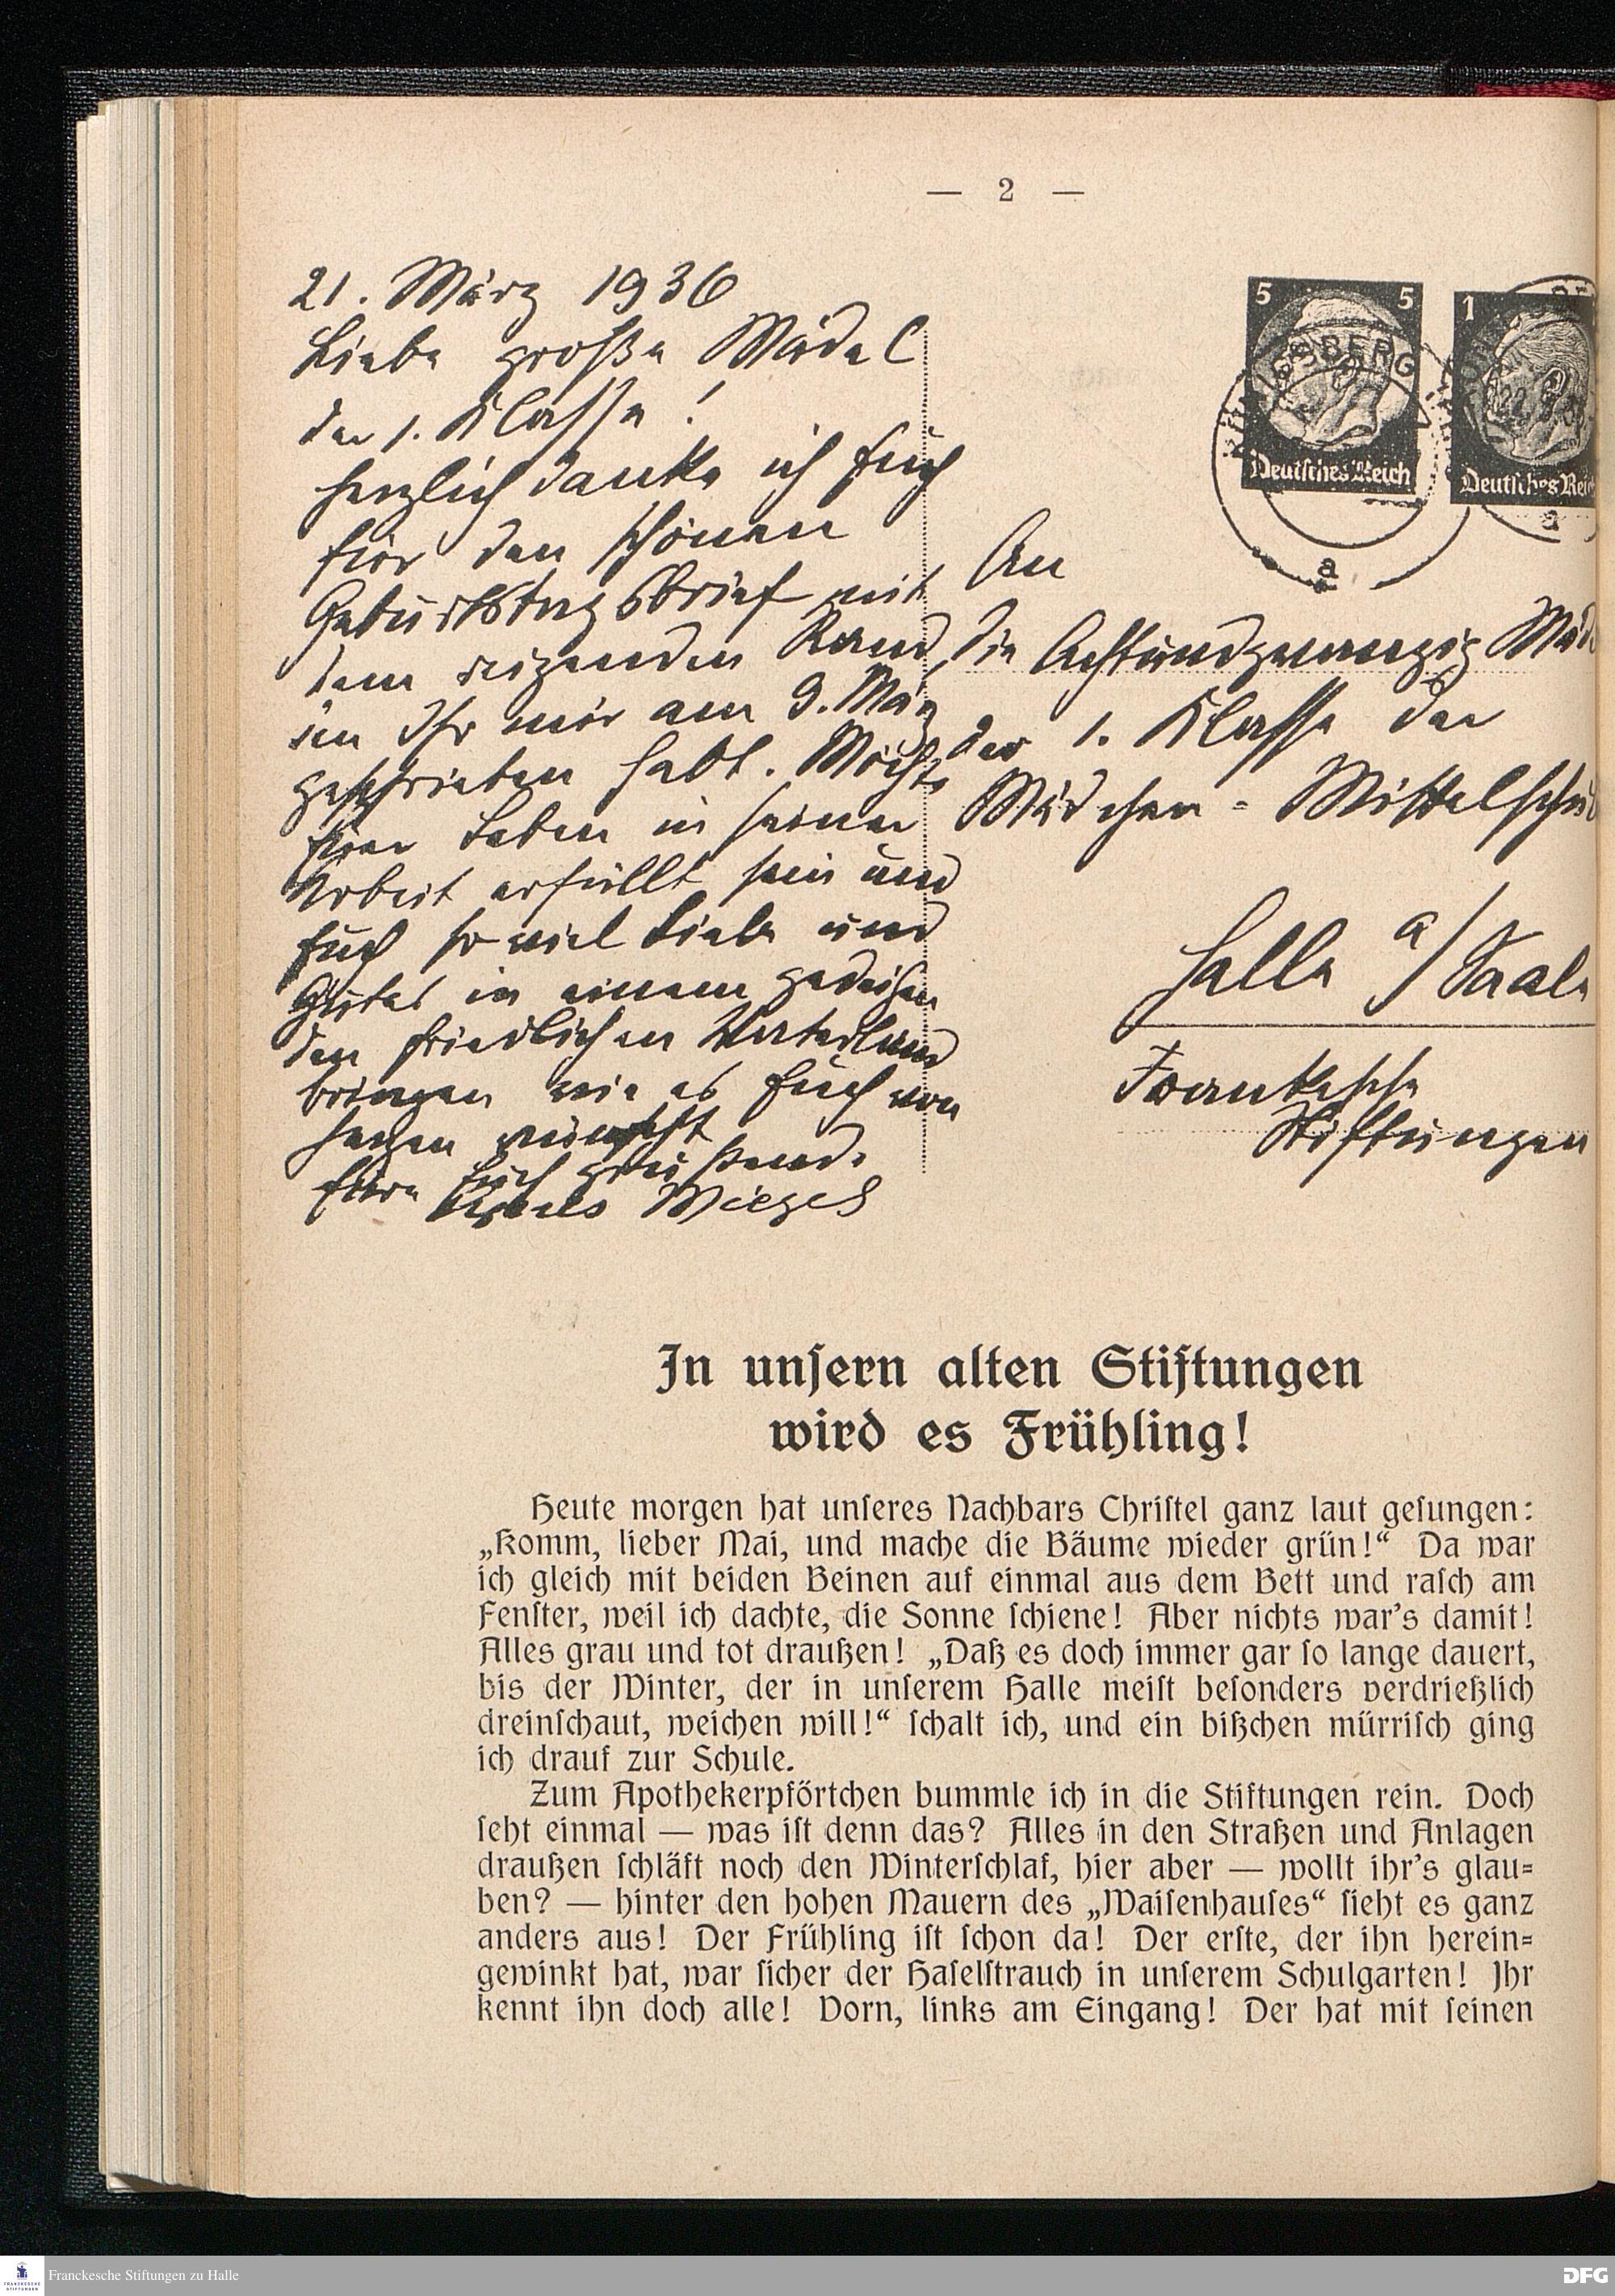 — 2 —
21. März 1936
Liebe große Mädel
der 1. Klasse!
Herzlich danke ich Euch
für den schönen
Geburtstagsbrief mit
dem reizenden Rand,
den Ihr mir am 9. März
geschrieben habt. Möchte
Euer Leben in seiner
Arbeit erfüllt sein und
Euch so viel Liebe und
Gutes in einem gedeihen
den friedlichen Vaterland
bringen wie es Euch von
Herzen wünscht
Eure Euch grüßende
Agnes Miegel
5 5
Deutsches Reich
KÖNIGSBERG
a
1
Deutsches Rei
22.3.36
a
An
die Achtundzwanzig Mäd
der 1. Klasse der
Mädchen-Mittelschul
Halle a/Saale
Frankesche
Stiftungen
In unsern alten Stiftungen
wird es Frühling!
Heute morgen hat unseres Nachbars Christel ganz laut gesungen:
„Komm, lieber Mai, und mache die Bäume wieder grün!“ Da war
ich gleich mit beiden Beinen auf einmal aus dem Bett und rasch am
Fenster, weil ich dachte, die Sonne schiene! Aber nichts war's damit!
Alles grau und tot draußen! „Daß es doch immer gar so lange dauert,
bis der Winter, der in unserem Halle meist besonders verdrießlich
dreinschaut, weichen will!“ schalt ich, und ein bißchen mürrisch ging
ich drauf zur Schule.
Zum Apothekerpförtchen bummle ich in die Stiftungen rein. Doch
seht einmal — was ist denn das? Alles in den Straßen und Anlagen
draußen schläft noch den Winterschlaf, hier aber — wollt ihr's glau-
ben? — hinter den hohen Mauern des „Waisenhauses“ sieht es ganz
anders aus! Der Frühling ist schon da! Der erste, der ihn herein-
gewinkt hat, war sicher der Haselstrauch in unserem Schulgarten! Ihr
kennt ihn doch alle! Vorn, links am Eingang! Der hat mit seinen
FRANCKESCHE STIFTUNGEN
Franckesche Stiftungen zu Halle
DFG